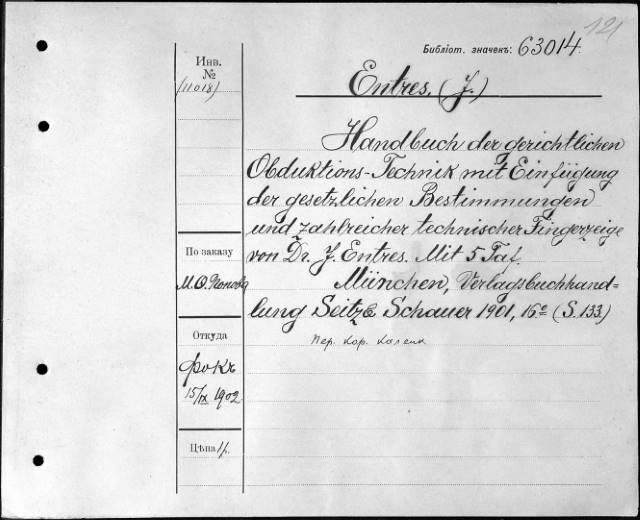 121
Библіот. значекъ: 63014
Инв.
№
(11018)
Entres. (J.)
Handbuch der gerichtlichen
Obduktions-Technik mit Einfügung
der gesetzlichen Bestimmungen
und zahlreicher technischer Fingerzeige
von Dr. J. Entres. Mit 5 Taf.
München, Verlagsbuchhand=
lung Seitz & Schauer 1901, 16.° (S. 133)
По заказу
М. О. Попова
Откуда
Фокъ
15/IX 1902
Цѣна
Пер. кор.